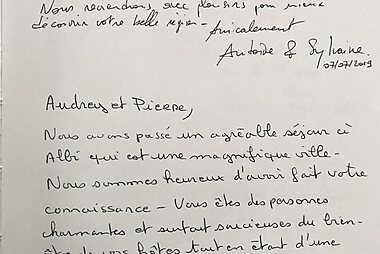 Nous reviendrons avec plaisirs pour mieux
découvrir votre belle région - Amicalement
Antoine & Sylvaine
07/07/2019
Audrey et Pierre,
Nous avons passé un agréable séjour à
Albi qui est une magnifique ville -
Nous sommes heureux d'avoir fait votre
connaissance - Vous êtes des personnes
charmantes et surtout soucieuses du bien-
être de vos hôtes tout en étant d'une